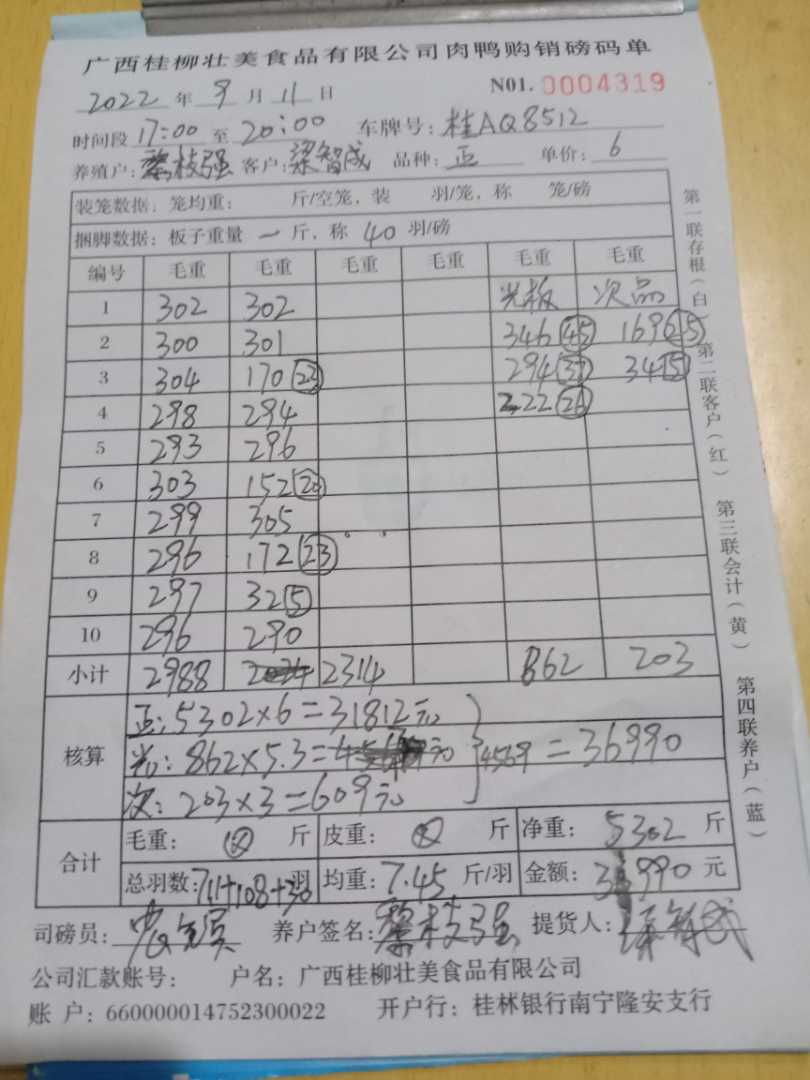 广西桂柳壮美食品有限公司肉鸭购销磅码单
2022 年 9 月 11 日 N01. 0004319
时间段 17:00 至 20:00 车牌号: 桂AQ8512
养殖户: 黎枝强 客户: 梁智成 品种: 正 单价: 6
装笼数据: 笼均重: 斤/空笼, 装 羽/笼, 称 笼/磅
捆脚数据: 板子重量 一 斤, 称 40 羽/磅
编号 毛重 毛重 毛重 毛重 毛重 毛重
1 302 302 光板 次品
2 300 301 346 45 169 25
3 304 170 23 294 37 34 5
4 298 294 222 26
5 293 296
6 303 152 20
7 299 305
8 296 172 23
9 297 32 5
10 296 290
小计 2988 2314 862 203
核算 正: 5302×6=31812元
光: 862×5.3= 元 4569 =36990
次: 203×3=609元
合计 毛重: 斤 皮重: 斤 净重: 5302 斤
总羽数: 711+108+30 羽 均重: 7.45 斤/羽 金额: 36990 元
司磅员: 养户签名: 黎枝强 提货人: 梁智成
公司汇款账号: 户名: 广西桂柳壮美食品有限公司
账 户: 660000014752300022 开户行: 桂林银行南宁隆安支行
第一联存根(白) 第二联客户(红) 第三联会计(黄) 第四联养户(蓝)